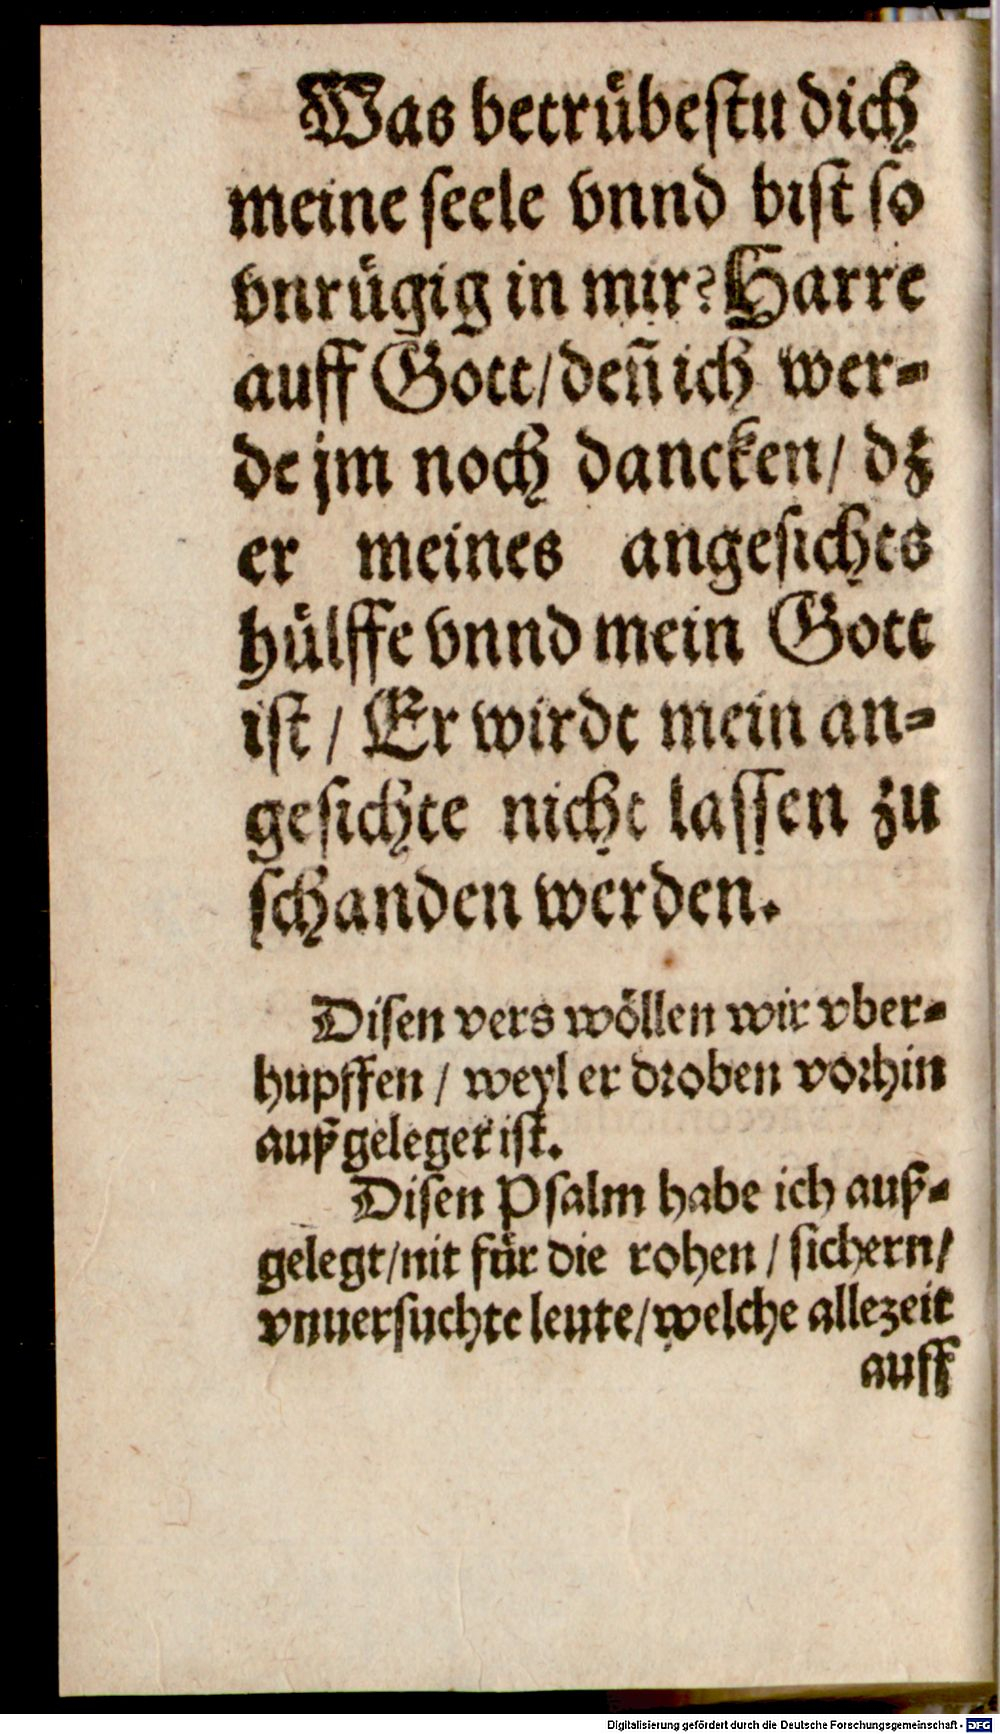 Was betrübestu dich
meine seele vnnd bist so
vnrügig in mir? Harre
auff Gott/ deñ ich wer-
de jm noch dancken/ dz
er meines angesichts
hülffe vnnd mein Gott
ist / Er wirdt mein an-
gesichte nicht lassen zu
schanden werden.
Disen vers wöllen wir vber-
hupffen / weyl er droben vorhin
außgeleget ist.
Disen Psalm habe ich auß-
gelegt/ nit für die rohen / sichern/
vnuersuchte leute/ welche allezeit
auff
Digitalisierung gefördert durch die Deutsche Forschungsgemeinschaft - DFG